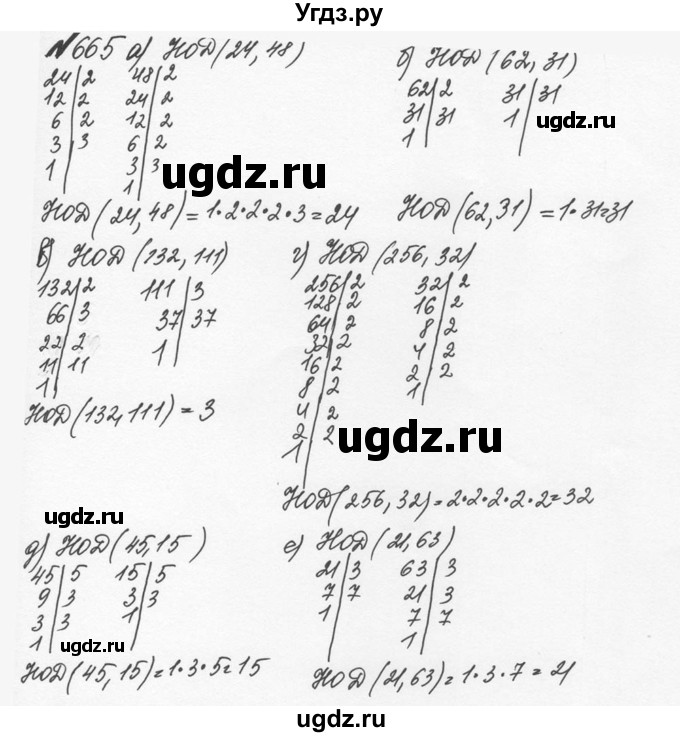 Угдз.ру
№665 а) НОД(24, 48)
24|2 48|2
12|2 24|2
6|2 12|2
3|3 6|2
1| 3|3
1|
НОД(24, 48)=1·2·2·2·3=24
б) НОД(62, 31)
62|2 31|31
31|31 1|
1|
НОД(62,31)=1·31=31
в) НОД(132, 111)
132|2 111|3
66|3 37|37
22|2 1|
11|11
1|
НОД(132,111)=3
г) НОД(256, 32)
256|2 32|2
128|2 16|2
64|2 8|2
32|2 4|2
16|2 2|2
8|2 1|
4|2
2|2
1|
НОД(256, 32)=2·2·2·2·2=32
д) НОД(45,15)
45|5 15|5
9|3 3|3
3|3 1|
1|
НОД(45,15)=1·3·5=15
е) НОД(21,63)
21|3 63|3
7|7 21|3
1| 7|7
1|
НОД(21,63)=1·3·7=21
ugdz.ru
ugdz.ru
ugdz.ru
ugdz.ru
ugdz.ru
ugdz.ru